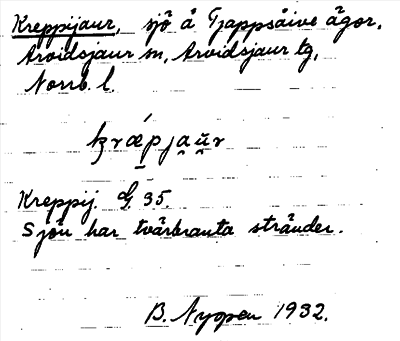 Kreppijaur, sjö å Tjappsåive ägor,
Arvidsjaur sn, Arvidsjaur tg,
Norrb. l.
Kreppij. G 35
Sjön har tvärbranta stränder.
B. Nyman 1932.